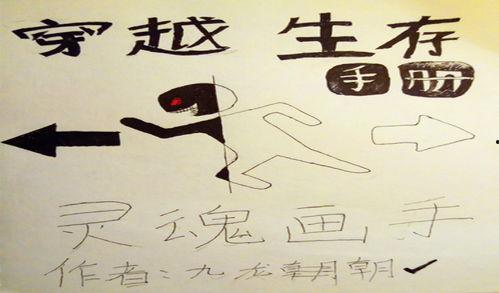 穿越生存
手册
灵魂画手
作者:九龙朝朝